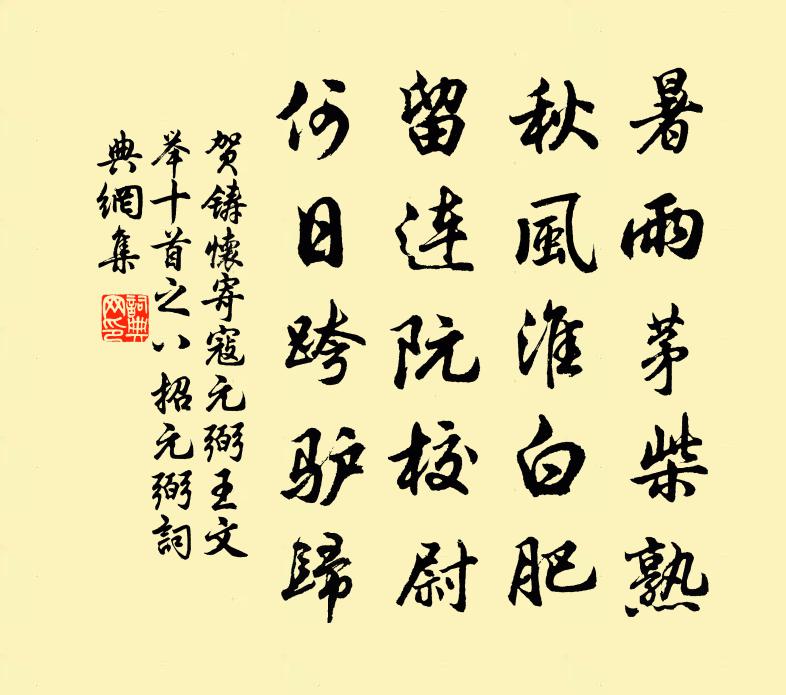 暑雨茅柴熟
秋風淮白肥
留連阮校尉
何日跨驴歸
贺鑄懷寄寇元弼王文
举十首之八招元弼詞
典網集
詞典网印